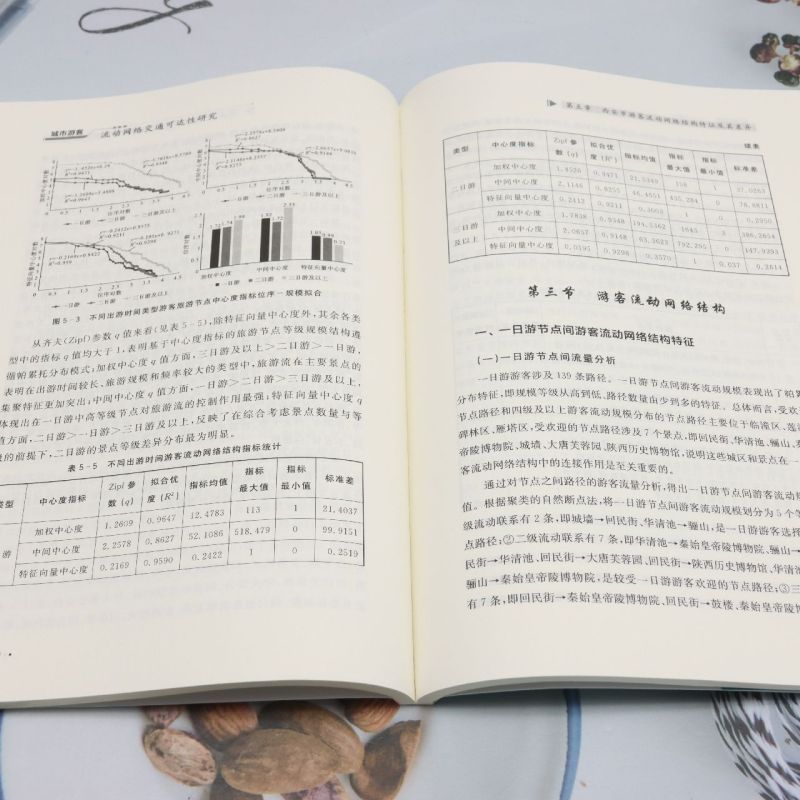 城市游客 流动网络交通可达性研究
加权中心度 中间中心度 特征向量中心度
一日游 二日游 三日游及以上
图 5-3 不同出游时间类型游客旅游节点中心度指标位序—规模拟合
从齐夫(Zipf)参数 q 值来看(见表 5-5),除特征向量中心度外,其余各类
型中的指标 q 值均大于 1,表明基于中心度指标的旅游节点等级规模结构遵
循帕累托分布模式;加权中心度 q 值方面,三日游及以上>二日游>一日游,
表明在出游时间较长,旅游规模和频率较大的类型中,旅游流在主要景点的
集聚特征更加突出;中间中心度 q 值方面,一日游>二日游>三日游及以上,
体现出在一日游中高等级节点对旅游流的控制作用最强;特征向量中心度 q
值方面,二日游>一日游>三日游及以上,反映了在综合考虑景点数量与等
的前提下,二日游的景点等级差异分布最为明显。
表 5-5 不同出游时间游客流动网络结构指标统计
类型 中心度指标 Zipf 参数 (q) 拟合优度 (R²) 指标均值 指标最大值 指标最小值 标准差
加权中心度 1.2609 0.9647 12.4783 113 1 21.4037
游 中间中心度 2.2578 0.8627 52.1086 518.479 0 99.9151
特征向量中心度 0.2169 0.9590 0.2422 1 0 0.2519
第五章 西安市游客流动网络结构特征及其差异
续表
类型 中心度指标 Zipf 参数 (q) 拟合优度 (R²) 指标均值 指标最大值 指标最小值 标准差
二日游 加权中心度 1.4526 0.9471 21.5349 158
中间中心度 2.1146 0.9255 46.4651 435.284 0
特征向量中心度 0.2412 0.9211 0
三日游及以上 加权中心度 1.7838 0.9348 194.5362 1645 386.2654
中间中心度 2.0657 0.9148 63.3623 792.265 0 147.9293
特征向量中心度 0.0195 0.9298 0.3570 1 0.037 0.2614
第三节 游客流动网络结构
一、一日游节点间游客流动网络结构特征
(一)一日游节点间流量分析
一日游游客涉及 139 条路径。一日游节点间游客流动规模表现出了帕累
分布特征,即规模等级从高到低、路径数量由少到多的特征。总体而言,受欢
节点路径和四级及以上游客流动规模分布的节点路径主要位于临潼区、莲
碑林区、雁塔区,受欢迎的节点路径涉及 7 个景点,即回民街、华清池、骊山、秦
帝陵博物院、城墙、大唐芙蓉园、陕西历史博物馆,说明这些城区和景点在一
客流动网络结构中的连接作用是至关重要的。
通过对节点之间路径的游客流量分析,得出一日游节点间游客流动规
值。根据聚类的自然断点法,将一日游节点间游客流动规模划分为 5 个等
级流动联系有 2 条,即城墙→回民街、华清池→骊山,是一日游游客选择
点路径;②二级流动联系有 7 条,即华清池→秦始皇帝陵博物院、骊山→
民街→华清池、回民街→大唐芙蓉园、回民街→陕西历史博物馆、华清池
骊山→秦始皇帝陵博物院,是较受一日游游客欢迎的节点路径;③三
有 7 条,即回民街→秦始皇帝陵博物院、回民街→鼓楼、秦始皇帝陵博物